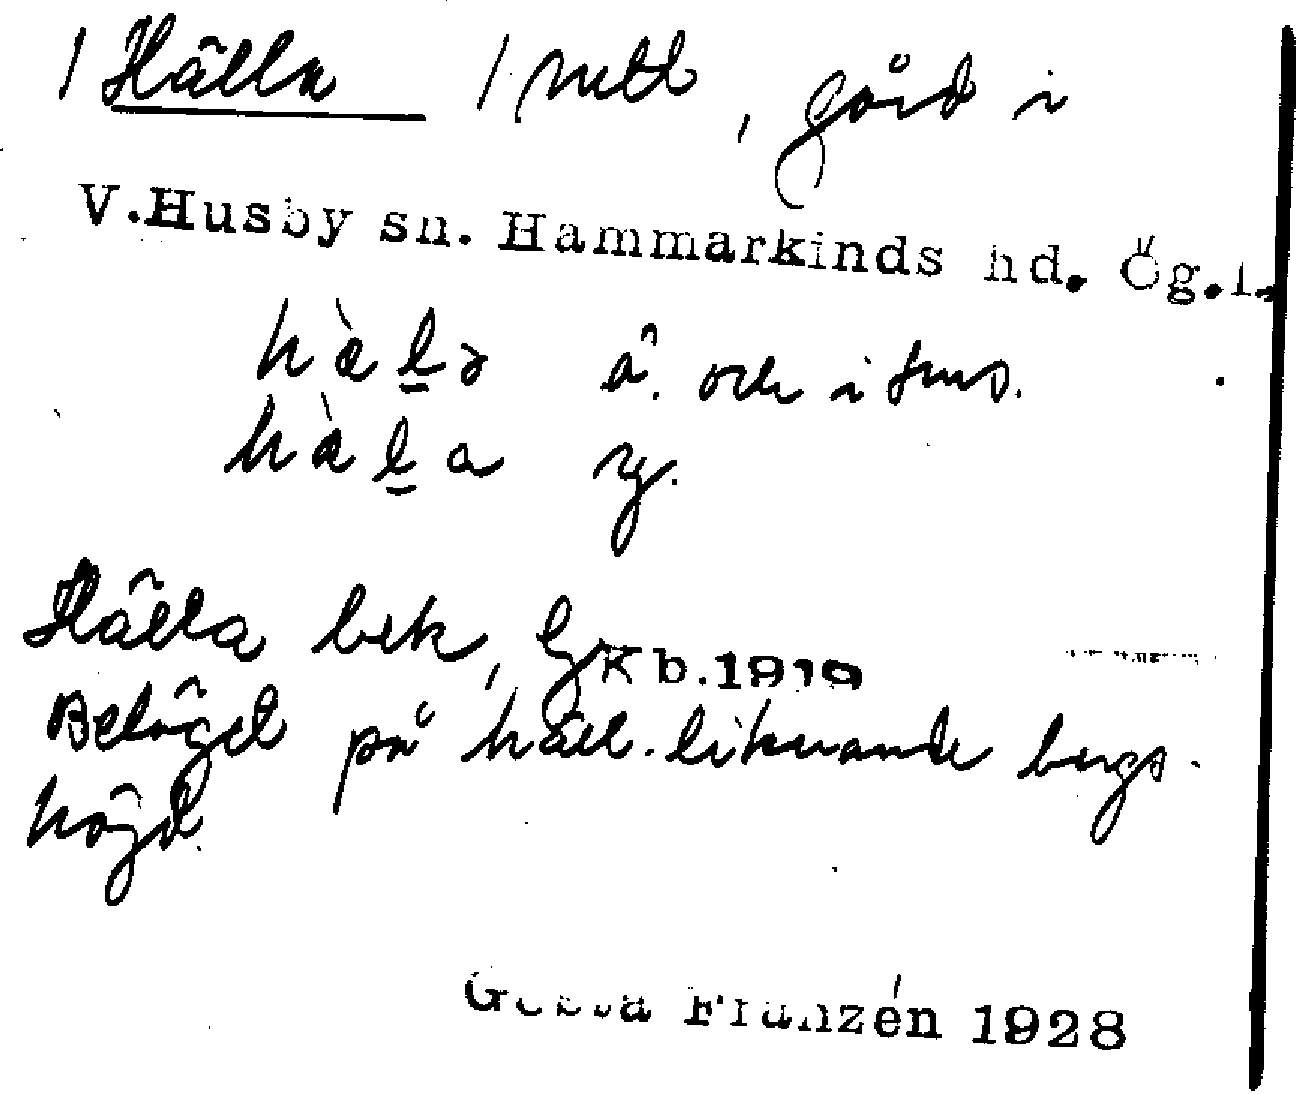 1 Hälla 1 mtl, gård i
V.Husby sn. Hammarkinds hd. Ög.l.
hàlə ä. och i sms.
hàla y.
Hälla bek, Gg Kb.1919
Beläget på häll-liknande bergs-
höjd.
Gösta Franzén 1928